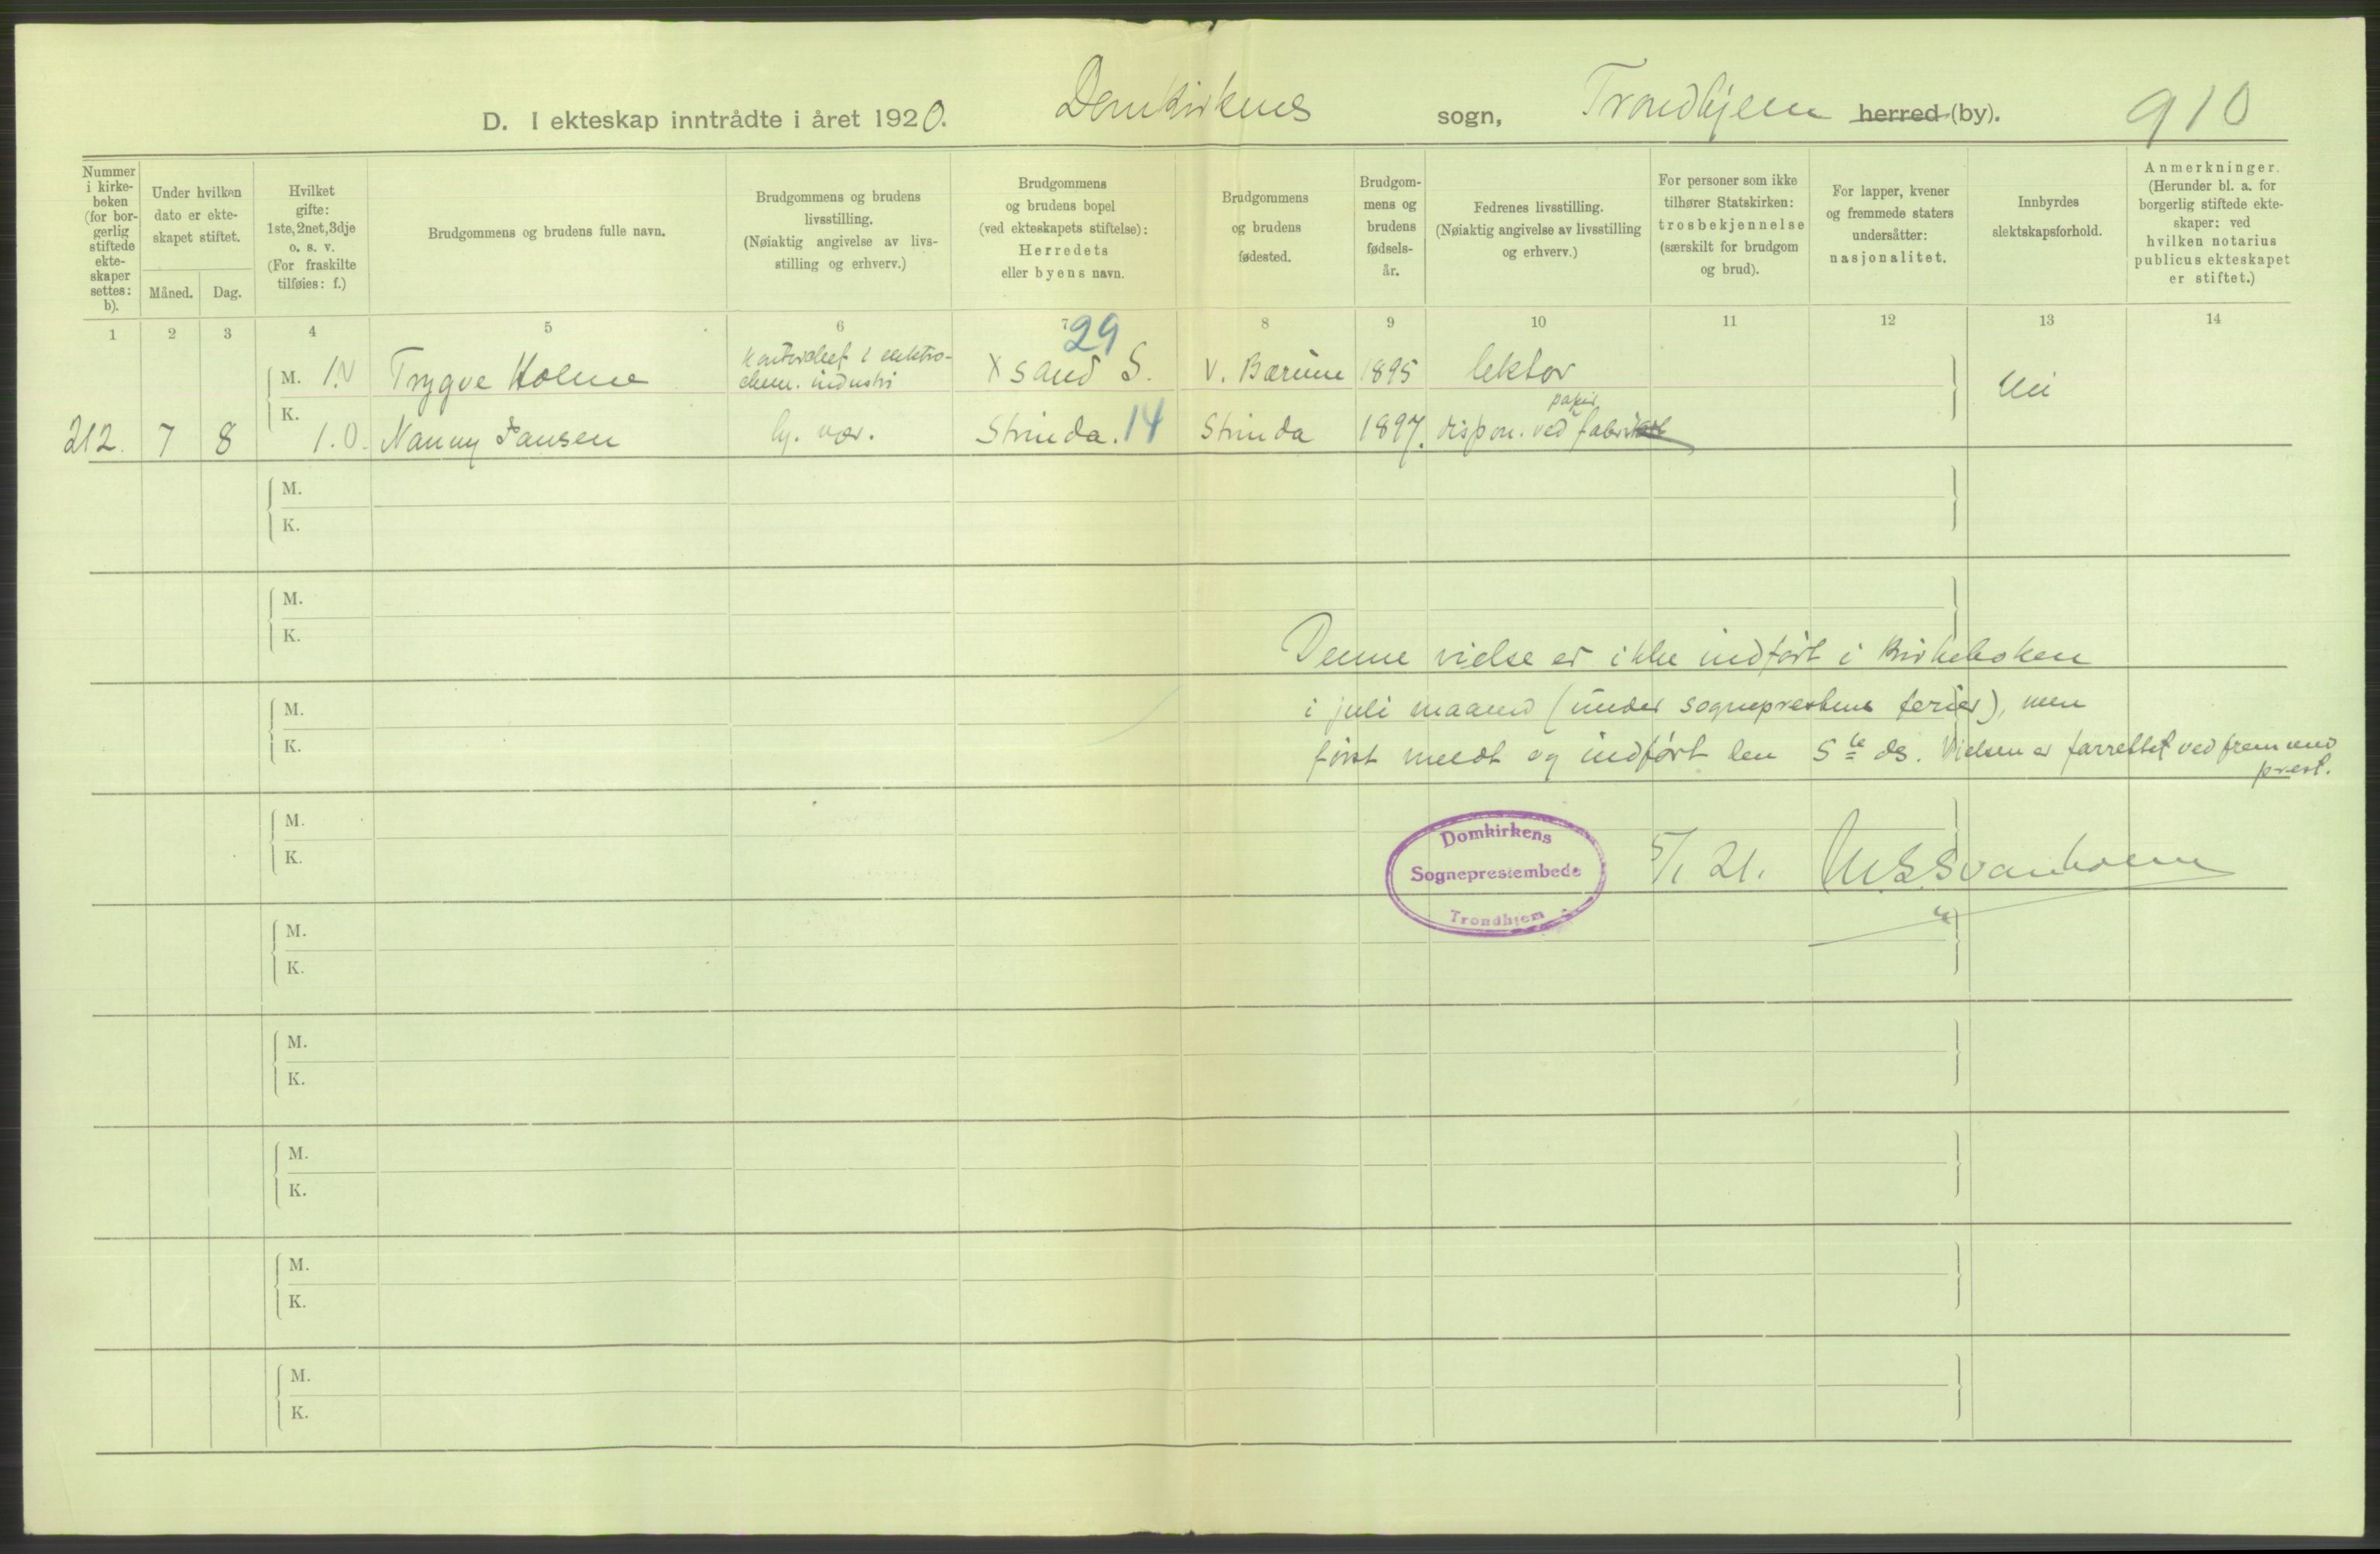 D. I ekteskap inntrådte i året 1920. Domkirkens sogn, Trondhjem herred (by). 910
Nummer
i kirke-
boken
(for bor-
gerlig
stiftede
ekte-
skaper
settes:
b).
Under hvilken
dato er ekte-
skapet stiftet.
Måned. Dag.
Hvilket
gifte:
1ste, 2net, 3dje
o. s. v.
(For fraskilte
tilføies: f.)
Brudgommens og brudens fulle navn.
Brudgommens og brudens
livsstilling.
(Nøiaktig angivelse av livs-
stilling og erhverv.)
Brudgommens
og brudens bopel
(ved ekteskapets stiftelse):
Herredets
eller byens navn.
Brudgommens
og brudens
fødested.
Brudgom-
mens og
brudens
fødsels-
år.
Fedrenes livsstilling.
(Nøiaktig angivelse av livsstilling
og erhverv.)
For personer som ikke
tilhører Statskirken:
trosbekjennelse
(særskilt for brudgom
og brud).
For lapper, kvener
og fremmede staters
undersåtter:
nasjonalitet.
Innbyrdes
slektskapsforhold.
Anmerkninger.
(Herunder bl. a. for
borgerlig stiftede ekte-
skaper: ved
hvilken notarius
publicus ekteskapet
er stiftet.)
1 2 3 4 5 6 7 8 9 10 11 12 13 14
29
kontorchef i elektro-
M. 1.N Trygve Holme chem. industri X sand S. V. Bærum 1895 lektor Nei
K.
papir
212. 7 8 1.O. Nanny Jansen hj. vær. Strinda. 14 Strinda 1897. dispon. ved fabrikk
M.
K.
M.
K.
Denne vielse er ikke indført i Kirkeboken
M.
i juli maaned (under sogneprestens ferier), men
K.
først meldt og indført den 5te ds. Vielsen er forrettet ved fremmed
prest.
M.
K.
Domkirkens
Sogneprestembede
Trondhjem
5/1 21.
M.
K.
M.
K.
M.
K.
M.
K.
M.
K.